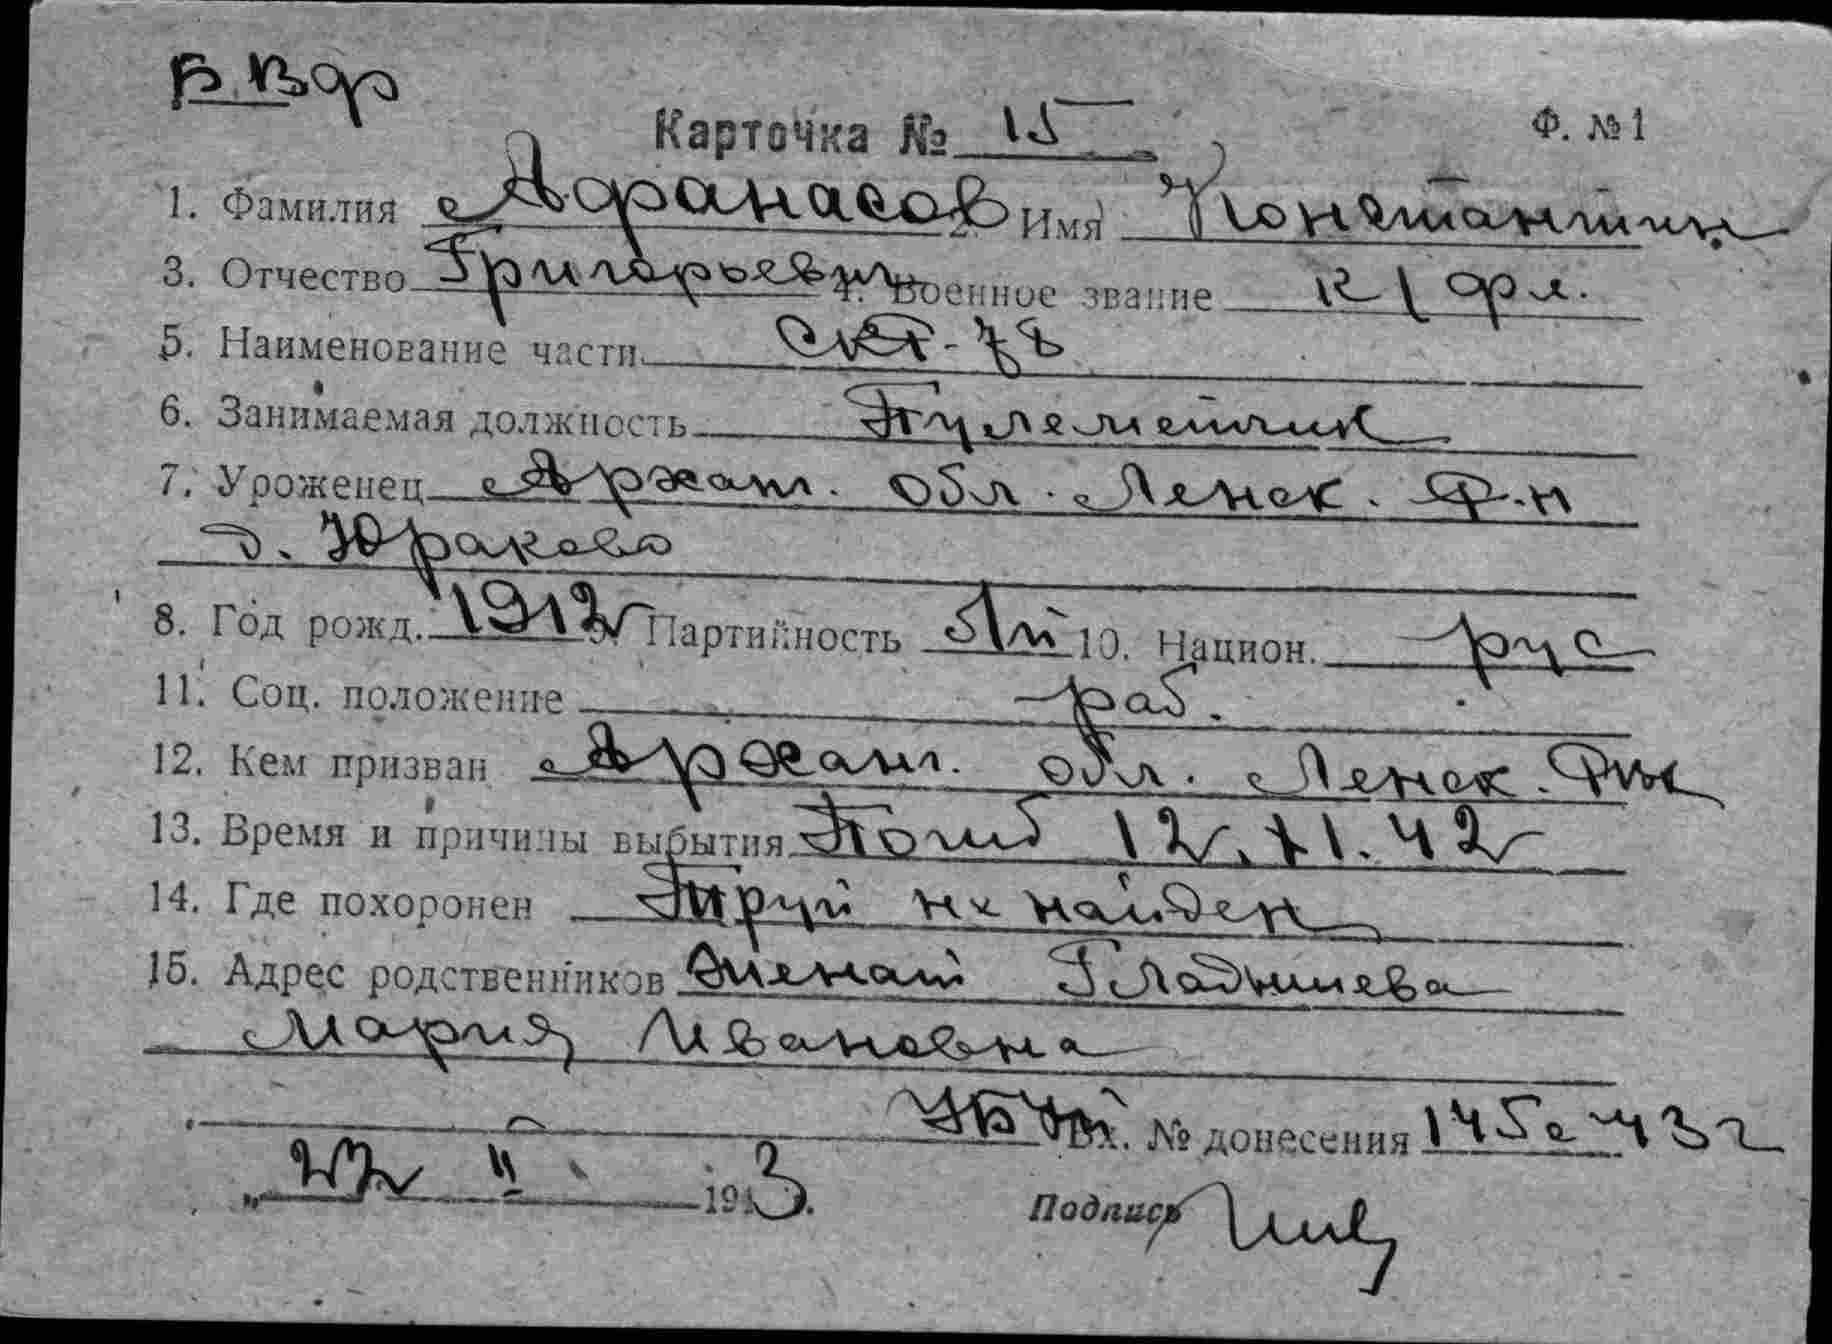 Б. Вдр
Карточка № 15 Ф. №1
1. Фамилия Афанасов 2. Имя Константин
3. Отчество Григорьевич 4. Военное звание к/фл.
5. Наименование части СКА-78
6. Занимаемая должность Пулеметчик
7. Уроженец Арханг. обл. Ленск. р-н
д. Юраково
8. Год рожд. 1912 Партийность б/п 10. Национ. рус
11. Соц. положение раб.
12. Кем призван Арханг. обл. Ленск. Рвк
13. Время и причины выбытия Погиб 12.11.42
14. Где похоронен Труп не найден
15. Адрес родственников Женат Гладышева
Мария Ивановна
Вх. № донесения 145с 43 г
„ 22 II 1943.
Подпись